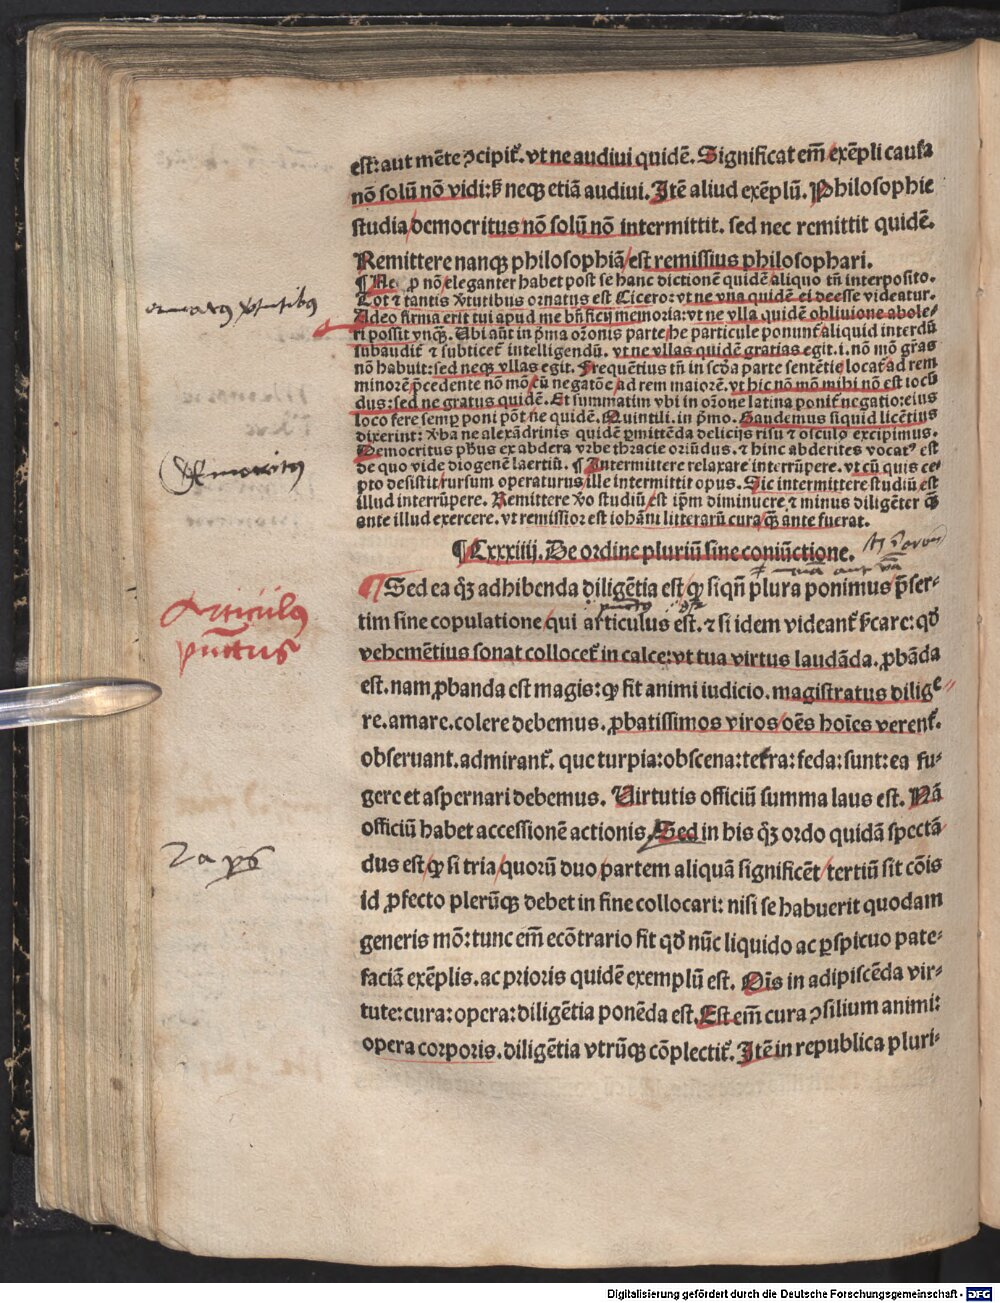 est: aut mẽte ꝯcipit᷑. vt ne audiui quidẽ. Significat em̃ exẽpli causa
nõ solũ nõ vidi: sʒ neqꝫ etiã audiui. Itẽ aliud exẽplũ. Philosophie
studia democritus nõ solũ nõ intermittit. sed nec remittit quidẽ.
Remittere nanqꝫ philosophiã est remissius philosophari.
¶ Ne ꝓ nõ eleganter habet post se hanc dictionẽ quidẽ aliquo tñ interposito.
Tot ⁊ tantis v̾tutibus ornatus est Cicero: vt ne vna quidẽ ei deesse videatur.
Adeo firma erit tui apud me bñficij memoria: vt ne vlla quidẽ obliuione abole-
ri possit vnqꝫ. Vbi aũt in p̃ma or̃onis parte he particule ponunt᷑ aliquid interdũ
subaudit᷑ ⁊ subticet᷑ intelligendũ. vt ne vllas quidẽ gratias egit. i. nõ mõ gr̃as
nõ habuit: sed neqꝫ vllas egit. Frequẽtius tñ in scďa parte sentẽtie locat᷑ ad rem
minorẽ p̃cedente nõ mõ cũ negatõe ad rem maiorẽ. vt hic nõ mõ mihi nõ est iocũ
dus: sed ne gratus quidẽ. Et summatim vbi in oõne latina ponit᷑ negatio: eius
loco fere semp̱ poni põt ne quidẽ. Quintili. in p̃mo. Gaudemus siquid licẽtius
dixerint: v̾ba ne alexãdrinis quidẽ p̱mittẽda delicijs risu ⁊ osculo excipimus.
Democritus ph̃us ex abdera vrbe thracie oriũdus. ⁊ hinc abderites vocatꝰ est
de quo vide diogenẽ laertiũ. ¶ Intermittere relaxare interrũpere. vt cũ quis ce-
pto desistit rursum operaturus ille intermittit opus. Sic intermittere studiũ est
illud interrũpere. Remittere v̾o studiũ est ip̃m diminuere ⁊ minus diligẽter q̃ꝫ
ante illud exercere. vt remissior est iohãni litterarũ cura q̃ꝫ ante fuerat.
¶ Cxxxiiij. De ordine pluriũ sine coniũctione.
¶ Sed ea qʒ adhibenda diligẽtia est ꝙ siqñ plura ponimus p̃ser-
tim sine copulatione qui articulus est. ⁊ si idem videant᷑ sʒcare: qď
vehemẽtius sonat collocet᷑ in calce: vt tua virtus laudãda. ꝓbãda
est. nam ꝓbanda est magis: ꝙ fit animi iudicio. magistratus dilige-
re. amare. colere debemus. ꝓbatissimos viros oẽs hoĩes verent᷑.
obseruant. admirant᷑. que turpia: obscena: tetra: feda: sunt: ea fu-
gere et aspernari debemus. Virtutis officiũ summa laus est. Nã
officiũ habet accessionẽ actionis. Sed in his qʒ ordo quidã spectã
dus est ꝙ si tria quorũ duo partem aliquã significẽt tertiũ sit cõis
id ꝓfecto plerũqꝫ debet in fine collocari: nisi se habuerit quodam
generis mõ: tunc em̃ ecõtrario fit qď nũc liquido ac p̱spicuo pate-
faciã exẽplis. ac prioris quidẽ exemplũ est. Oĩs in adipiscẽda vir-
tute: cura: opera: diligẽtia ponẽda est. Est em̃ cura ꝯsilium animi:
opera corporis. diligẽtia vtrũqꝫ cõplectit᷑. Itẽ in republica pluri-
Democritus
Articulus
punctus
Digitalisierung gefördert durch die Deutsche Forschungsgemeinschaft - DFG